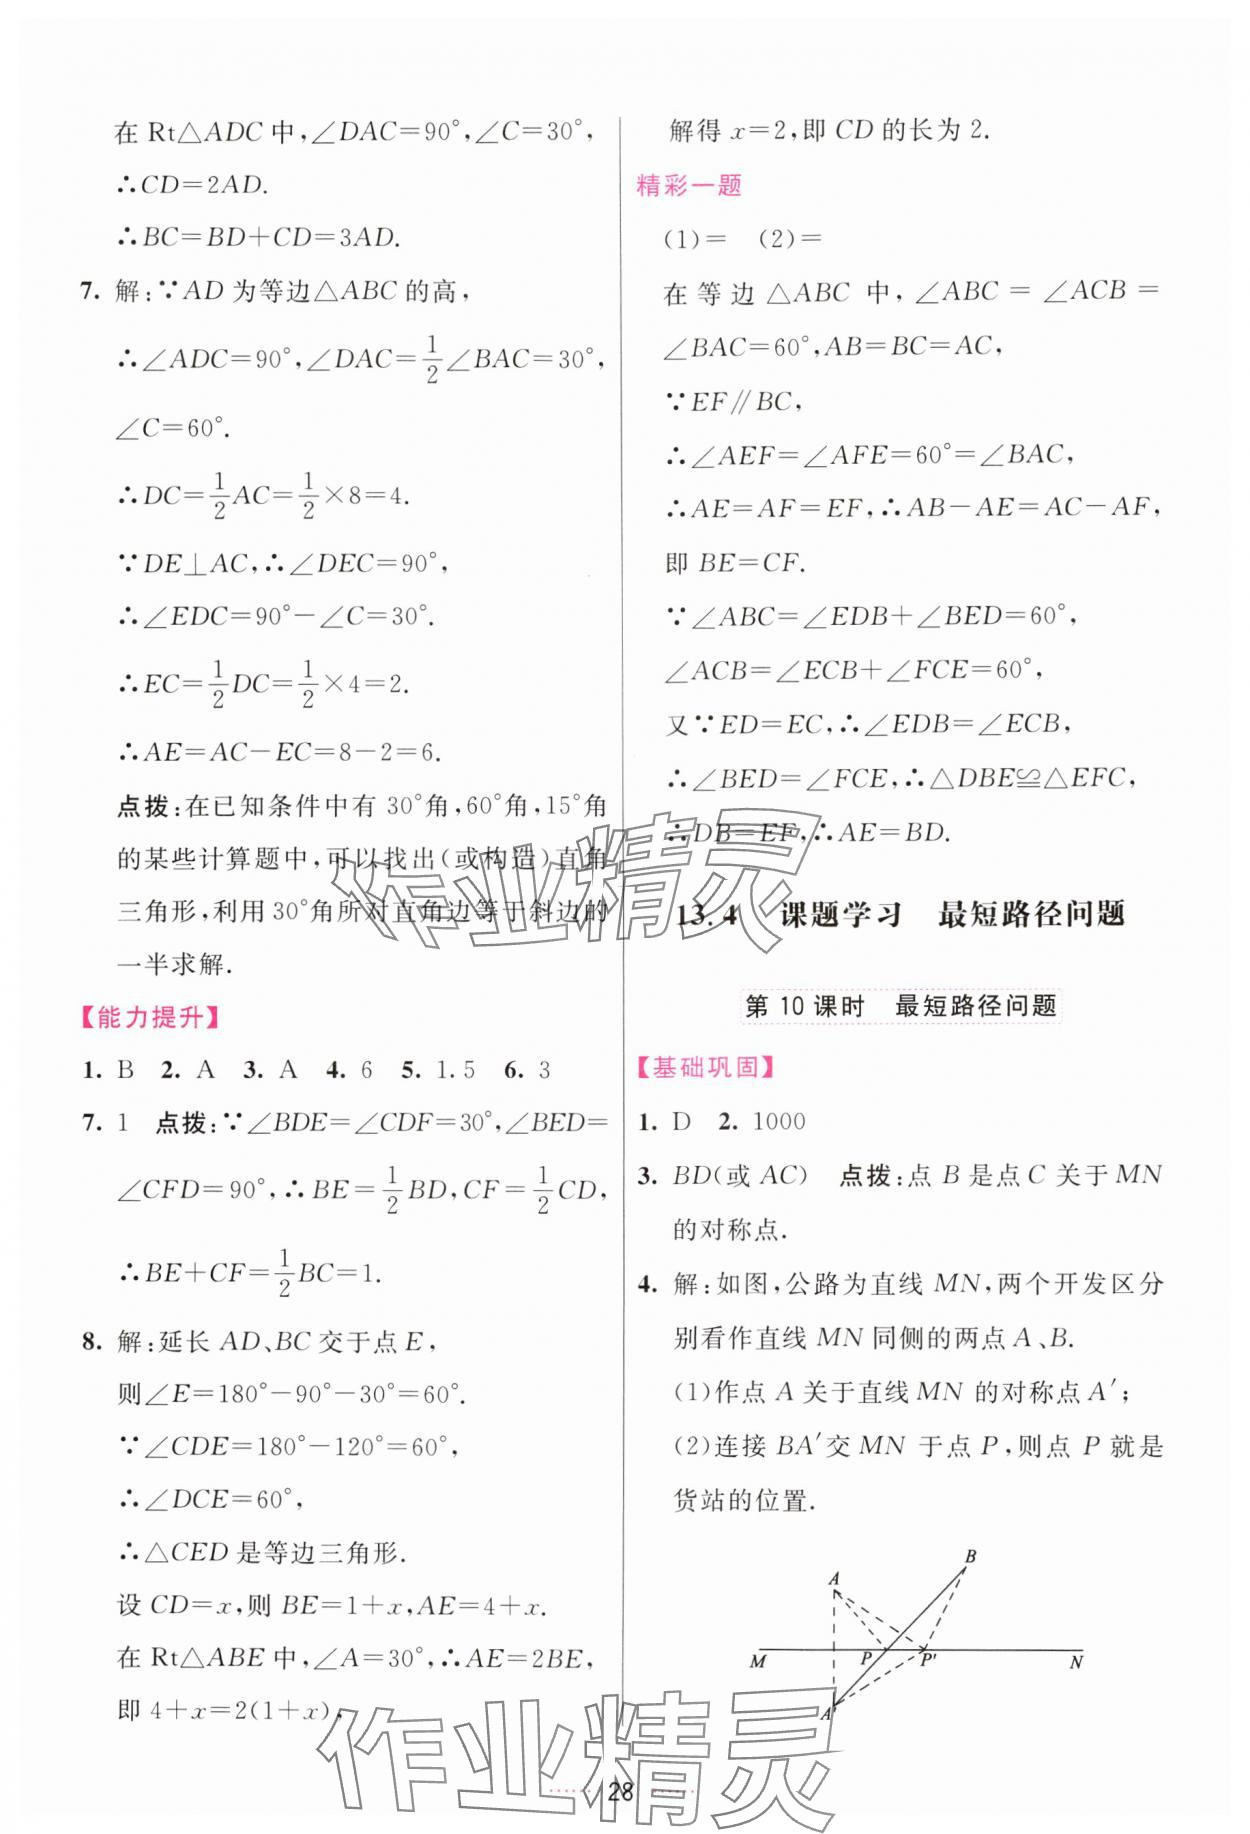 在 Rt△ADC 中,∠DAC=90°,∠C=30°,
∴CD=2AD.
∴BC=BD+CD=3AD.
7. 解:∵AD 为等边△ABC 的高,
∴∠ADC=90°,∠DAC=1/2∠BAC=30°,
∠C=60°.
∴DC=1/2AC=1/2×8=4.
∵DE⊥AC,∴∠DEC=90°,
∴∠EDC=90°-∠C=30°.
∴EC=1/2DC=1/2×4=2.
∴AE=AC-EC=8-2=6.
点拨:在已知条件中有 30°角,60°角,15°角
的某些计算题中,可以找出(或构造)直角
三角形,利用30°角所对直角边等于斜边的
一半求解.
【能力提升】
1. B 2. A 3. A 4. 6 5. 1.5 6. 3
7. 1 点拨:∵∠BDE=∠CDF=30°,∠BED=
∠CFD=90°,∴BE=1/2BD,CF=1/2CD,
∴BE+CF=1/2BC=1.
8. 解:延长 AD、BC 交于点 E,
则∠E=180°-90°-30°=60°.
∵∠CDE=180°-120°=60°,
∴∠DCE=60°,
∴△CED 是等边三角形.
设 CD=x,则 BE=1+x,AE=4+x.
在 Rt△ABE 中,∠A=30°,∴AE=2BE,
即 4+x=2(1+x),
解得 x=2,即 CD 的长为 2.
精彩一题
(1)= (2)=
在等边△ABC 中,∠ABC=∠ACB=
∠BAC=60°,AB=BC=AC,
∵EF∥BC,
∴∠AEF=∠AFE=60°=∠BAC,
∴AE=AF=EF,∴AB-AE=AC-AF,
即 BE=CF.
∵∠ABC=∠EDB+∠BED=60°,
∠ACB=∠ECB+∠FCE=60°,
又∵ED=EC,∴∠EDB=∠ECB,
∴∠BED=∠FCE,∴△DBE≌△EFC,
∴DB=EF,∴AE=BD.
13.4 课题学习 最短路径问题
第 10 课时 最短路径问题
【基础巩固】
1. D 2. 1000
3. BD(或 AC) 点拨:点 B 是点 C 关于 MN
的对称点.
4. 解:如图,公路为直线 MN,两个开发区分
别看作直线 MN 同侧的两点 A、B.
(1)作点 A 关于直线 MN 的对称点 A′;
(2)连接 BA′交 MN 于点 P,则点 P 就是
货站的位置.
B
A
M P P′ N
A′
作业精灵
作业精灵
28